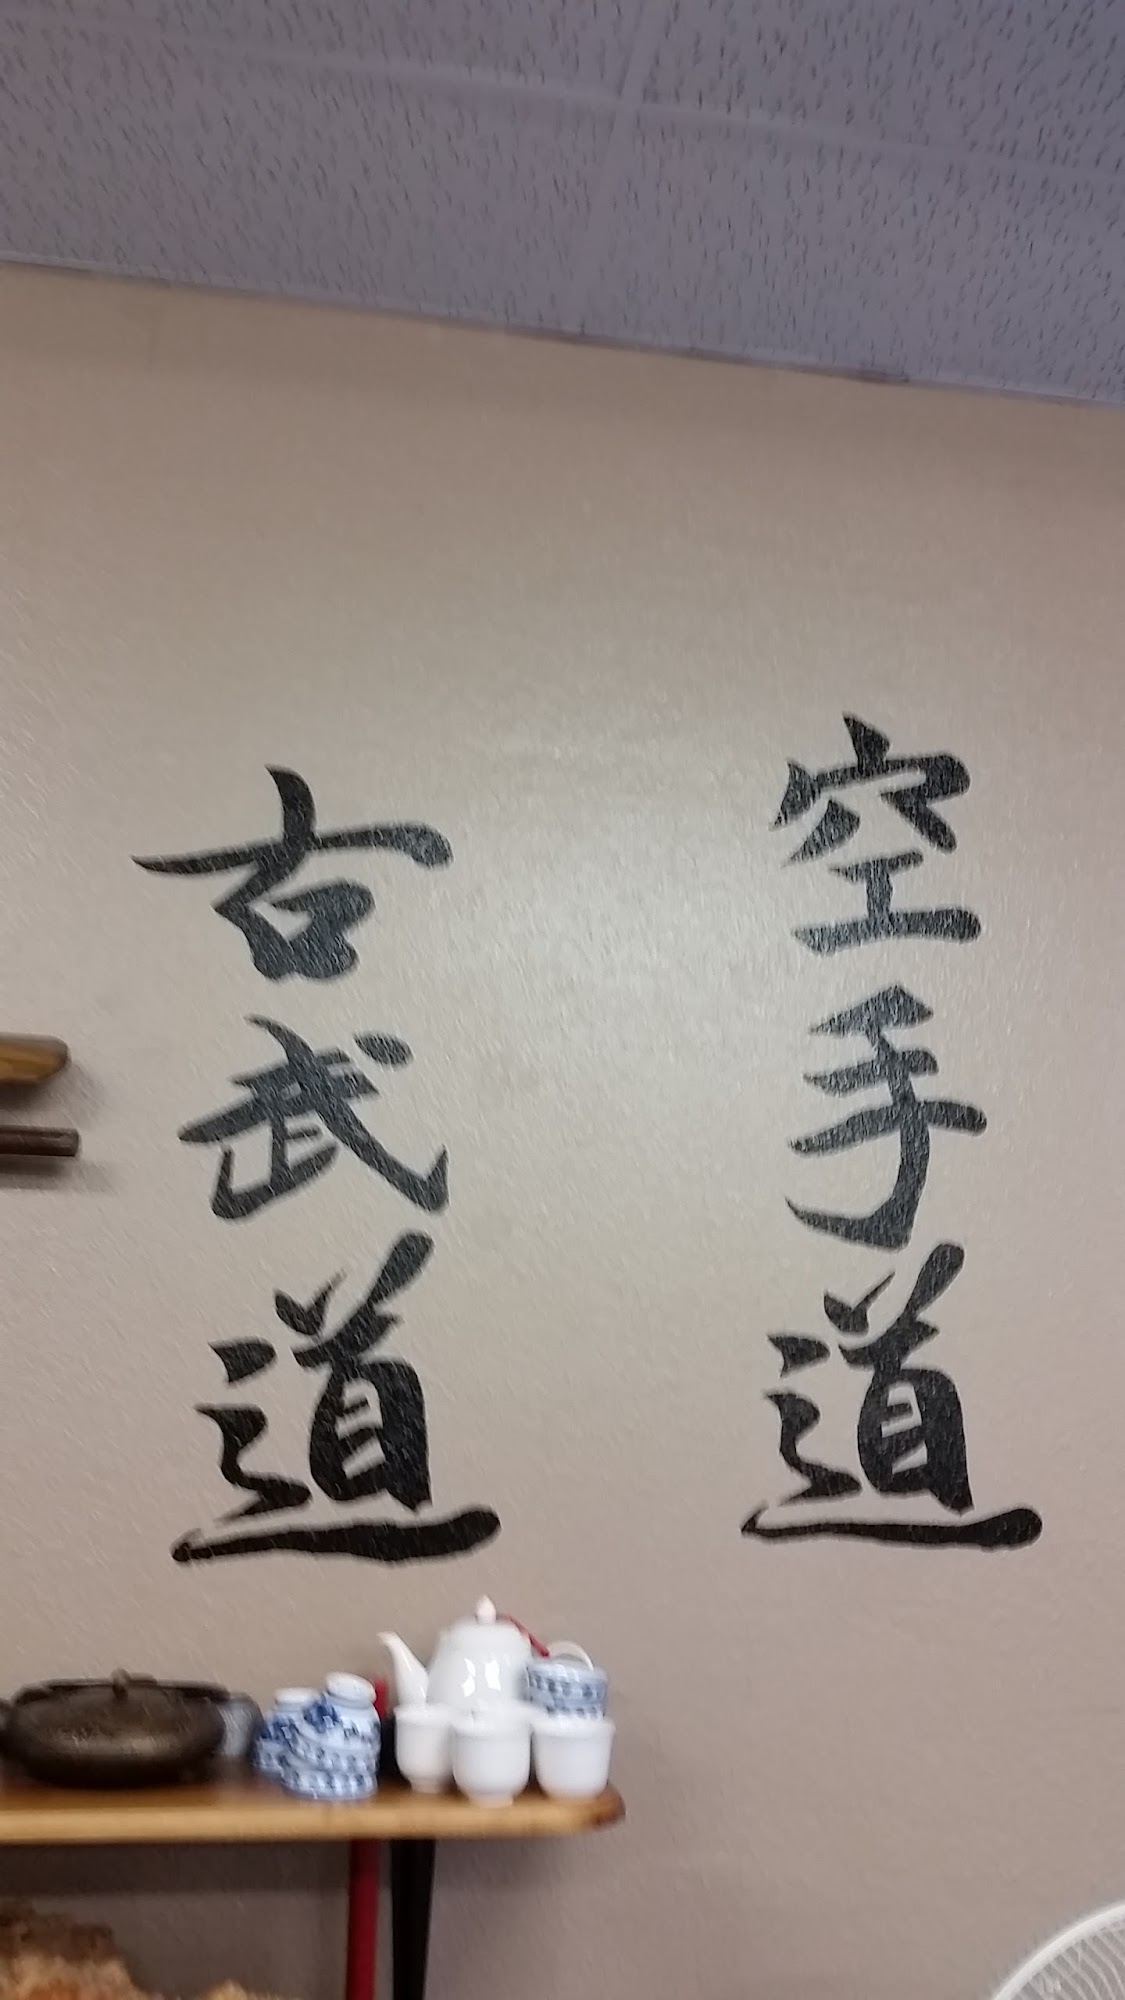 空手道
古武道